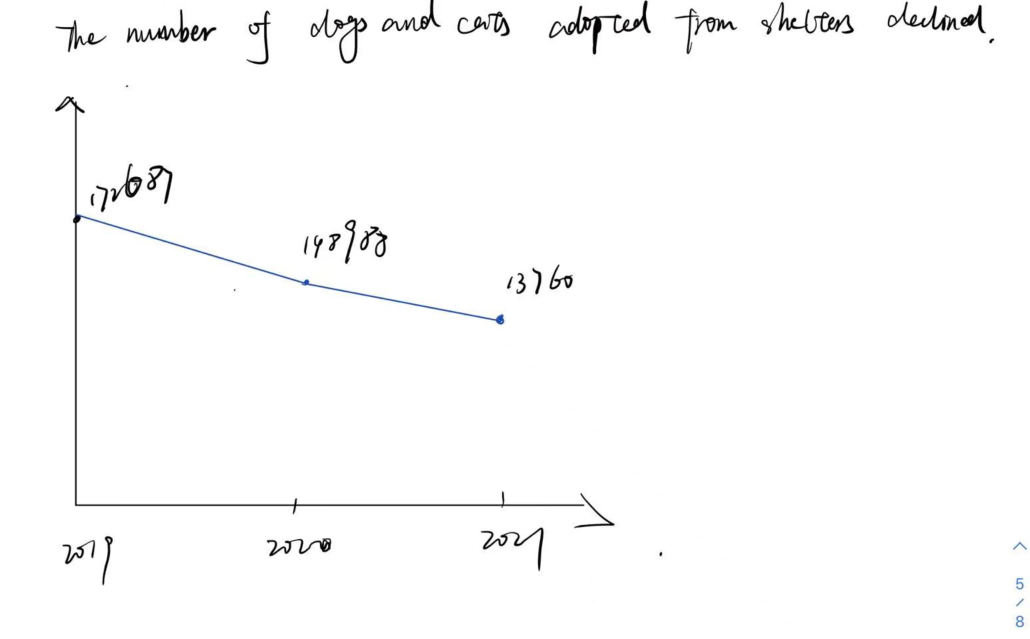 The number of dogs and cats adopted from shelters declined.
172687
148988
13760
2019
2020
2021
5
/
8